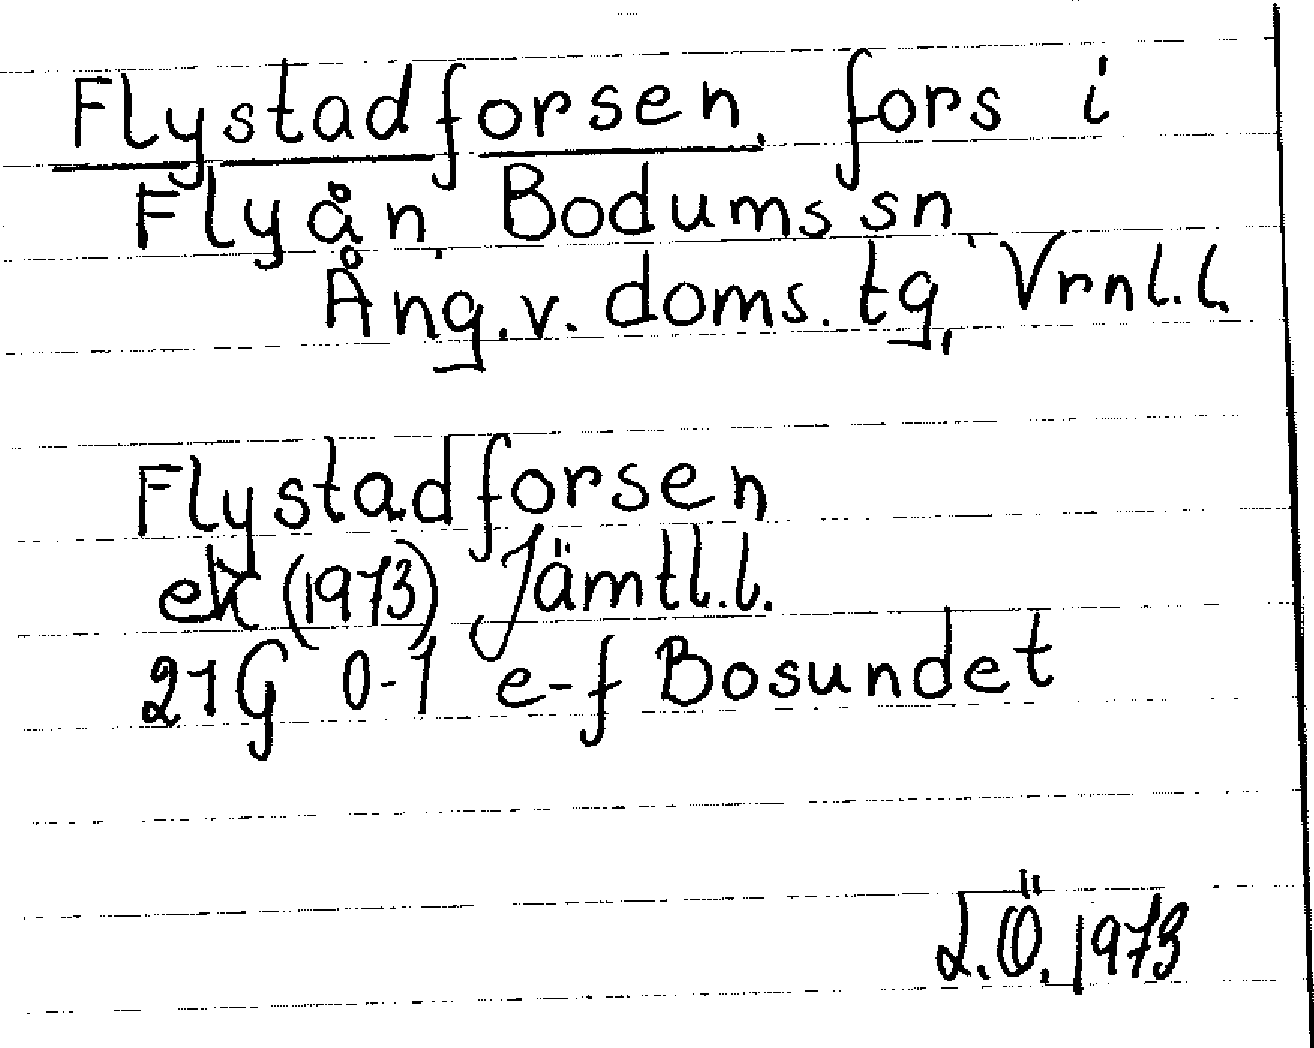 Flystadforsen, fors i
Flyån, Bodums sn,
Ång.v. doms.tg, Vrnl.l.
Flystadforsen
ek (1973) Jämtl.l.
21G 0-1 e-f Bosundet
L.Ö. 1973